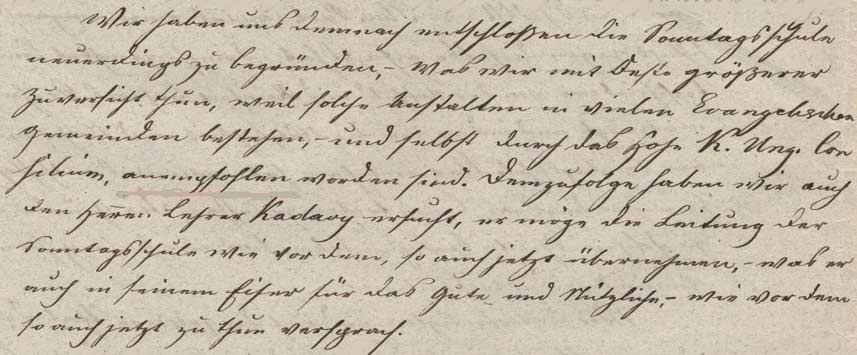 Wir haben uns demnach entschloßen die Sonntagsschule
neuerdings zu begründen, – was wir mit desto größerer
Zuversicht thun, weil solche Anstalten in vielen Evangelischen
Gemeinden bestehen, – und selbst durch das hohe K. Ung. Con
silium, anempfohlen worden sind. Demzufolge haben wir auch
den Herrn Lehrer Kadavy ersucht, er möge die Leitung der
Sonntagsschule wie vor dem, so auch jetzt übernehmen, – was er
auch in seinem Eifer für das Gute und Nützliche, – wie vor dem
so auch jetzt zu thun versprach.